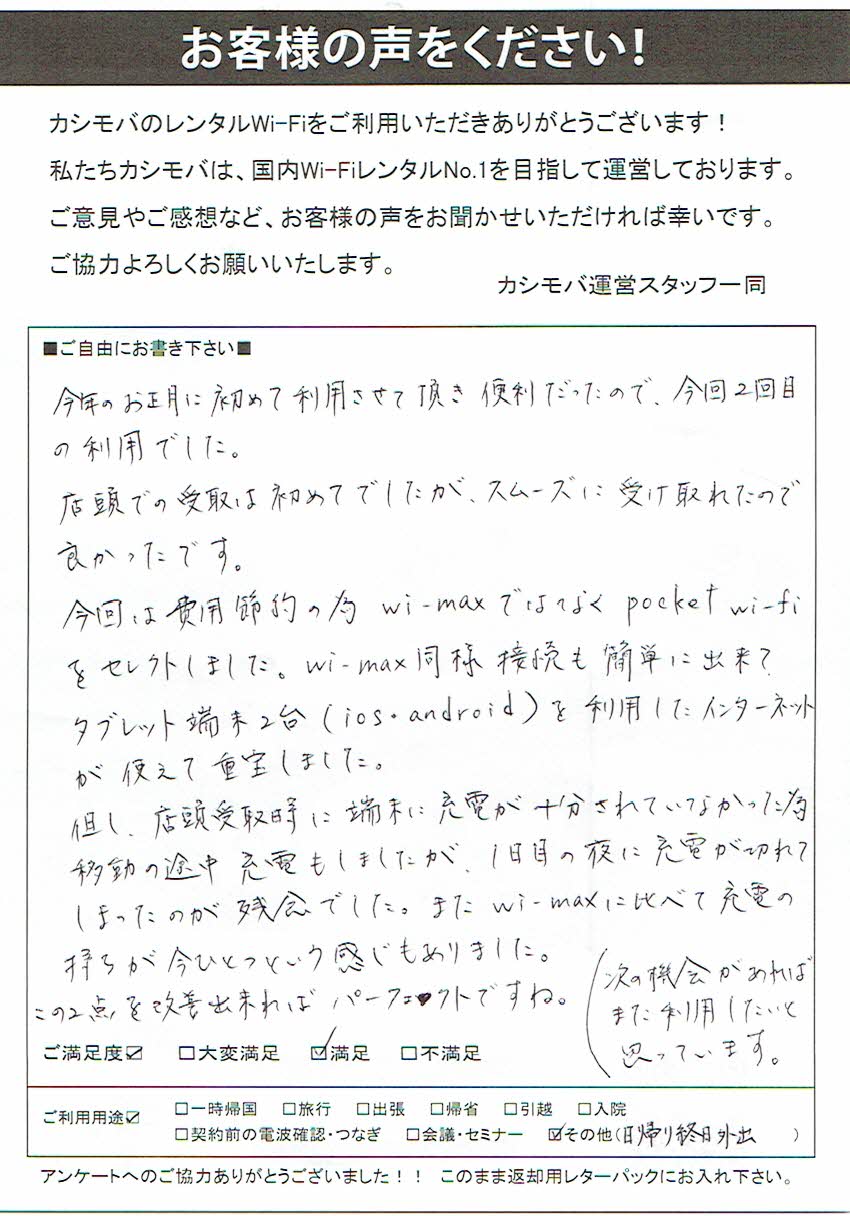 お客様の声をください!
カシモバのレンタルWi-Fiをご利用いただきありがとうございます！
私たちカシモバは、国内Wi-FiレンタルNo.1を目指して運営しております。
ご意見やご感想など、お客様の声をお聞かせいただければ幸いです。
ご協力よろしくお願いいたします。
カシモバ運営スタッフ一同
■ご自由にお書き下さい■
今年のお正月に初めて利用させて頂き便利だったので、今回2回目
の利用でした。
店頭での受取は初めてでしたが、スムーズに受け取れたので
良かったです。
今回は費用節約の為 wi-maxではなく pocket wi-fi
をセレクトしました。wi-max同様接続も簡単に出来て
タブレット端末2台(ios・android)を利用したインターネット
が使えて重宝しました。
但し、店頭受取時に端末に充電が十分されていなかった為
移動の途中充電もしましたが、1日目の夜に充電が切れて
しまったのが残念でした。また wi-maxに比べて充電の
持ちが今ひとつという感じもありました。
この2点を改善出来ればパーフェクトですね。
(次の機会があれば
また利用したいと
思っています。
ご満足度☑ □大変満足 ☑満足 □不満足
ご利用用途☑ □一時帰国 □旅行 □出張 □帰省 □引越 □入院
□契約前の電波確認・つなぎ □会議・セミナー ☑その他(日帰り終日外出 )
アンケートへのご協力ありがとうございました！！ このまま返却用レターパックにお入れ下さい。